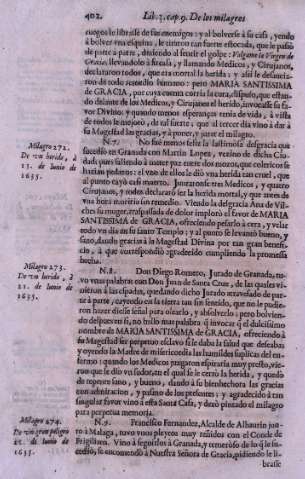 402. Lib. 3. cap. 9. De los milagros
ruegos le librasse de sus enemigos: y al bolverse à su casa, yendo
à bolver vna esquina, le tiraron tan fuerte estocada, que le passò
de parte à parte, diziendo al sentir el golpe: Valgame la Virgen de
Gracia. llevandolo à su casa, y llamando Medicos, y Cirujanos,
declararon todos, que era mortal la herida: y assi le desauciaron
de todo remedio humano: pero MARIA SANTISSIMA
de GRACIA, por cuya cuenta corria la cura, dispuso, que estando
delante de los Medicos, y Cirujanos el herido, invocasse su favor
Divino: y quando menos esperança tenia de vida, à vista
de todos le mejorò, de tal suerte, que al tercer dia vino à dar à
su Magestad las gracias, y à poner, y jurar el milagro.
Milagro 272.
De vna herida, à
11. de Iunio de
1635.
N. 7. No fue menos feliz la lastimosa desgracia que
sucediò en Granada con Martin Lopez, vezino de dicha Ciudad:
pues saliendo à meter paz entre dos mozos, que colericos se
herian
al vno de ellos le diò vna herida tan cruel, que
al punto cayò casi muerto. Juntaronse tres Medicos, y quatro
Cirujanos, y todos declararon ser la herida mortal, y que antes de
vna hora moriria sin remedio. Viendo la desgracia Ana de Vilches
su muger, traspassada de dolor implorò el favor de MARIA
SANTISSIMA de GRACIA, ofreciendo pesarlo à cera, y velar
todo vn dia en su santo Templo: y al punto se levantò bueno, y
sano, dando gracias à la Magestad Divina por tan gran beneficio,
à que correspondiò agradecido cumpliendo la promessa
hecha.
Milagro 273.
De vna herida, à
21. de Iunio de
1635.
N. 8. Don Diego Romero, Jurado de Granada, tuvo
vnas palabras con Don Juan de Santa Cruz, de las quales vinieron
à las espadas, quedando dicho Jurado atravesado de parte
à parte, cayendo en la tierra tan sin sentido, que no le pudieron
hazer diesse señal para olearlo, y absolverlo: pero bolviendo
despues en sì, no hablò mas palabra que invocar el dulcissimo
nombre de MARIA SANTISSIMA de GRACIA, ofreciendo à
su Magestad ser perpetuo esclavo si le daba la salud que deseaba:
y oyendo la Madre de misericordia las humildes suplicas del enfermo:
quando los Medicos juzgaron espiraria muy presto, vieron
que se diò vn sudor, en el qual se le cerrò la herida, y quedò
de repente sano, y bueno, dando à su bienhechora las gracias
con admiracion, y pasmo de los presentes: y agradecido à tan
singular favor vino à esta Santa Casa, y dexò pintado el milagro
para perpetua memoria.
Milagro 274.
De vn gran peligro
22. de Iunio de
1635.
N. 9. Francisco Fernandez, Alcalde de Alhaurin junto
à Malaga, tuvo vnos pleytos muy reñidos con el Conde de
Frigiliana. Vino à seguirlos à Granada, y temeroso de lo que sucediò,
se encomendò à Nuestra Señora de Gracia, pidiendole li-
brasse